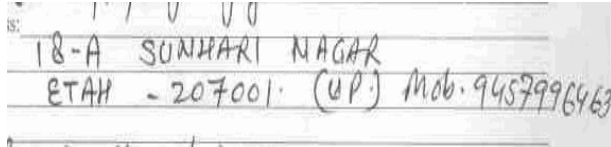 18-A SUNHARI NAGAR
ETAH - 207001. (UP.) Mob. 9457996463